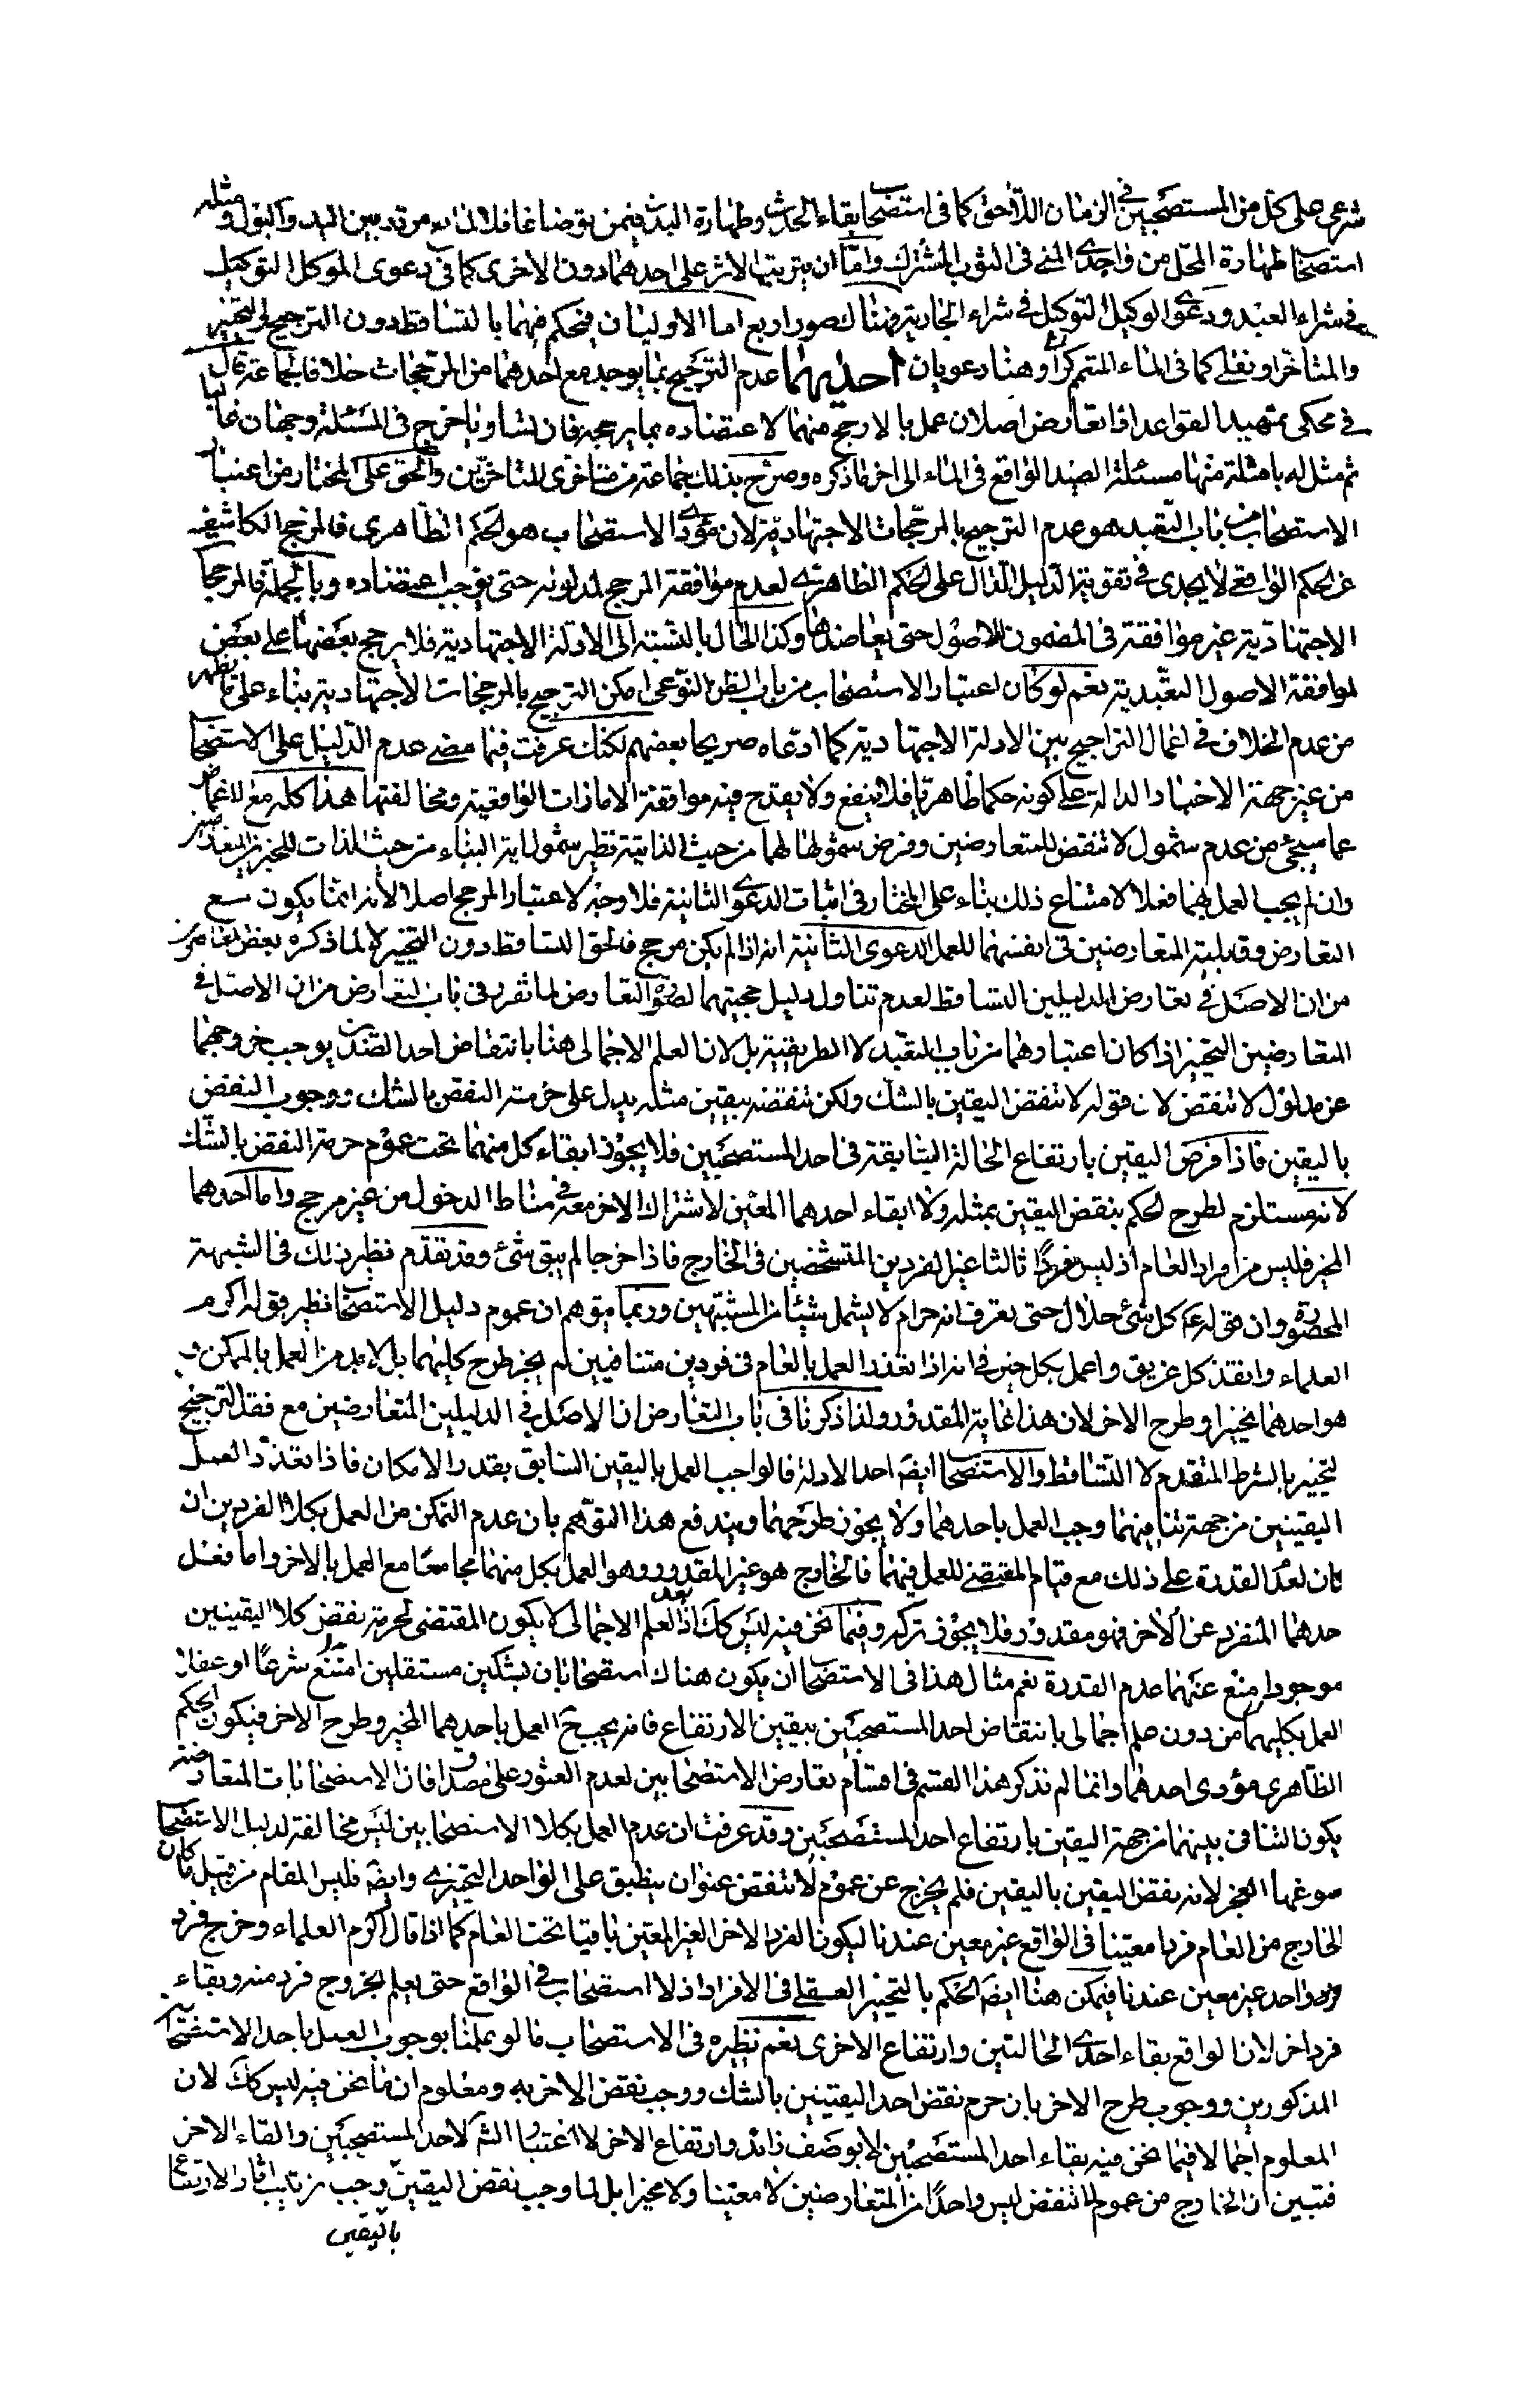 شرعى على كل من المستصحبين فى الزمان اللاحق كما فى استصحاب بقاء الحدث وطهارة البدن فيمن توضا غافلا بمايع مردد بين الماء والبول ومثله
استصحاب طهارة المحل من واجدى المنى فى الثوب المشترك واما ان يترتب الاثر على احدهما دون الاخرى كما فى دعوى الموكل التوكيل
فى شراء العبد ودعوى الوكيل التوكيل فى شراء الجارية فهناك صور اربع اما الاوليان فيحكم فيهما بالتساقط دون الترجيح والتخيير
والمتاخر او نقلى كما فى الماء المتمم كرا وهنا دعويان احديهما عدم الترجيح بما يوجد مع احدهما من المرجحات خلافا لجماعة قال
فى محكى تمهيد القواعد اذا تعارض اصلان عمل بالارجح منهما لاعتضاده بما يرجحه فان تساويا خرج فى المسئلة وجهان غالبا
ثم مثل له بامثلة منها مسئلة الصيد الواقع فى الماء الى اخر ما ذكره وصرح بذلك جماعة من متاخرى المتاخرين والحق على المختار من اعتبار
الاستصحاب من باب التعبد هو عدم الترجيح بالمرجحات الاجتهادية لان مؤدى الاستصحاب هو الحكم الظاهرى فالمرجح الكاشف
عن الحكم الواقعى لا يجدى فى تقوية الدليل الدال على الحكم الظاهرى لعدم موافقة المرجح لمدلوله حتى يوجب اعتضاده وبالجملة فالمرجحات
الاجتهادية غير موافقة فى المضمون للاصول حتى يعاضدها وكذا الحال بالنسبة الى الادلة الاجتهادية فلا يرجح بعضها على بعض
لموافقة الاصول التعبدية نعم لو كان اعتبار الاستصحاب من باب الظن النوعى امكن الترجيح بالمرجحات الاجتهادية بناء على ما يظهر
من عدم الخلاف فى اعمال التراجيح بين الادلة الاجتهادية كما ادعاه صريحا بعضهم لكنك عرفت فيما مضى عدم الدليل على الاستصحاب
من غير جهة الاخبار الدالة على كونه حكما ظاهريا فلا ينفع ولا يقدح فيه موافقة الامارات الواقعية ومخالفتها هذا كله مع الاغماض
عما سيجئ من عدم شمول لا تنقض للمتعارضين وفرض شمولها لهما من حيث الذات نظير شمول اية النباء من حيث الذات للخبرين المتعارضين
وان لم يجب العمل بهما فعلا لامتناع ذلك بناء على المختار فى اثبات الدعوى الثانية فلا وجه لاعتبار المرجح اصلا لانه انما يكون مع
التعارض وقابلية المتعارضين فى انفسهما للعمل الدعوى الثانية انه اذا لم يكن مرجح فالحق التساقط دون التخيير لا لما ذكره بعض المعاصرين
من ان الاصل فى تعارض الدليلين التساقط لعدم تناول دليل حجيتهما لصورة التعارض لما تقرر فى باب التعارض من ان الاصل فى
المتعارضين التخيير اذا كان اعتبارهما من باب التعبد لا الطريقية بل لان العلم الاجمالى هنا بانتقاض احد الضدين يوجب خروجهما
عن مدلول لا تنقض لان قوله لا تنقض اليقين بالشك ولكن تنقضه بيقين مثله يدل على حرمة النقض بالشك ووجوب النقض
باليقين فاذا فرض اليقين بارتفاع الحالة السابقة فى احد المستصحبين فلا يجوز ابقاء كل منهما تحت عموم حرمة النقض بالشك
لانه مستلزم لطرح الحكم بنقض اليقين بمثله ولا ابقاء احدهما المعين لاشتراك الاخر معه فى مناط الدخول من غير مرجح واما احدهما
المخير فليس من افراد العام اذ ليس فردا ثالثا غير الفردين المتشخصين فى الخارج فاذا خرجا لم يبق شئ وقد تقدم نظير ذلك فى الشبهة
المحصورة وان قوله ع كل شئ حلال حتى تعرف انه حرام لا يشمل شيئا من المشتبهين وربما يتوهم ان عموم دليل الاستصحاب نظير قوله اكرم
العلماء وانقذ كل غريق واعمل بكل خبر فى انه اذا تعذر العمل بالعام فى فردين متنافيين لم يجز طرح كليهما بل لا بد من العمل بالممكن و
هو احدهما تخييرا وطرح الاخر لان هذا غاية المقدور ولذا ذكرنا فى باب التعارض ان الاصل فى الدليلين المتعارضين مع فقد الترجيح
لتخيير بالشرط المتقدم لا التساقط والاستصحاب ايضا احد الادلة فالواجب العمل باليقين السابق بقدر الامكان فاذا تعذر العمل
اليقينين من جهة تنافيهما وجب العمل باحدهما ولا يجوز طرحهما ويندفع هذا التوهم بان عدم التمكن من العمل بكلا الفردين ان
كان لعدم القدرة على ذلك مع قيام المقتضى للعمل فيهما فالخارج هو غير المقدور وهو العمل بكل منهما مجامعا مع العمل بالاخر واما فعل
حدهما المنفرد عن الاخر فهو مقدور فلا يجوز تركه وفيما نحن فيه ليس كك اذ بعد العلم الاجمالى لا يكون المقتضى لحرمة نقض كلا اليقينين
موجودا منع عنهما عدم القدرة نعم مثال هذا فى الاستصحاب ان يكون هناك استصحابان بشكين مستقلين امتنع شرعا او عقلا
العمل بكليهما من دون علم اجمالى بانتقاض احد المستصحبين بيقين الارتفاع فانه يجب ح العمل باحدهما المخير وطرح الاخر فيكون الحكم
الظاهرى مؤدى احدهما وانما لم نذكر هذا القسم فى اقسام تعارض الاستصحابين لعدم العثور على مصداق فان الاستصحابات المتعارضة
يكون التنافى بينهما من جهة اليقين بارتفاع احد المستصحبين وقد عرفت ان عدم العمل بكلا الاستصحابين ليس مخالفة لدليل الاستصحاب
سوغها العجز لانه نقض اليقين باليقين فلم يخرج عن عموم لا تنقض عنوان ينطبق على الواحد التخييرى وايضا فليس المقام من قبيل ما كان
الخارج من العام فردا معينا فى الواقع غير معين عندنا ليكون الفرد الاخر الغير المعين باقيا تحت العام كما اذا قال اكرم العلماء وخرج فرد
واحد غير معين عندنا فيمكن هنا ايضا الحكم بالتخيير العقلى فى الافراد اذ لا استصحاب فى الواقع حتى يعلم بخروج فرد منه وبقاء
فرد اخر لان الواقع بقاء احدى الحالتين وارتفاع الاخرى نعم نظيره فى الاستصحاب ما لو علمنا بوجوب العمل باحد الاستصحابين
المذكورين ووجوب طرح الاخر بان حرم نقض احد اليقينين بالشك ووجب نقض الاخر به ومعلوم ان ما نحن فيه ليس كك لان
المعلوم اجمالا فيما نحن فيه بقاء احد المستصحبين لا بوصف زائد وارتفاع الاخر لا اعتبار الشارع لاحد المستصحبين والقاء الاخر
فتبين ان الخارج من عموم لا تنقض ليس واحدا من المتعارضين لا معينا ولا مخيرا بل لما وجب نقض اليقين وجب ترتيب اثار الارتفاع
باليقين